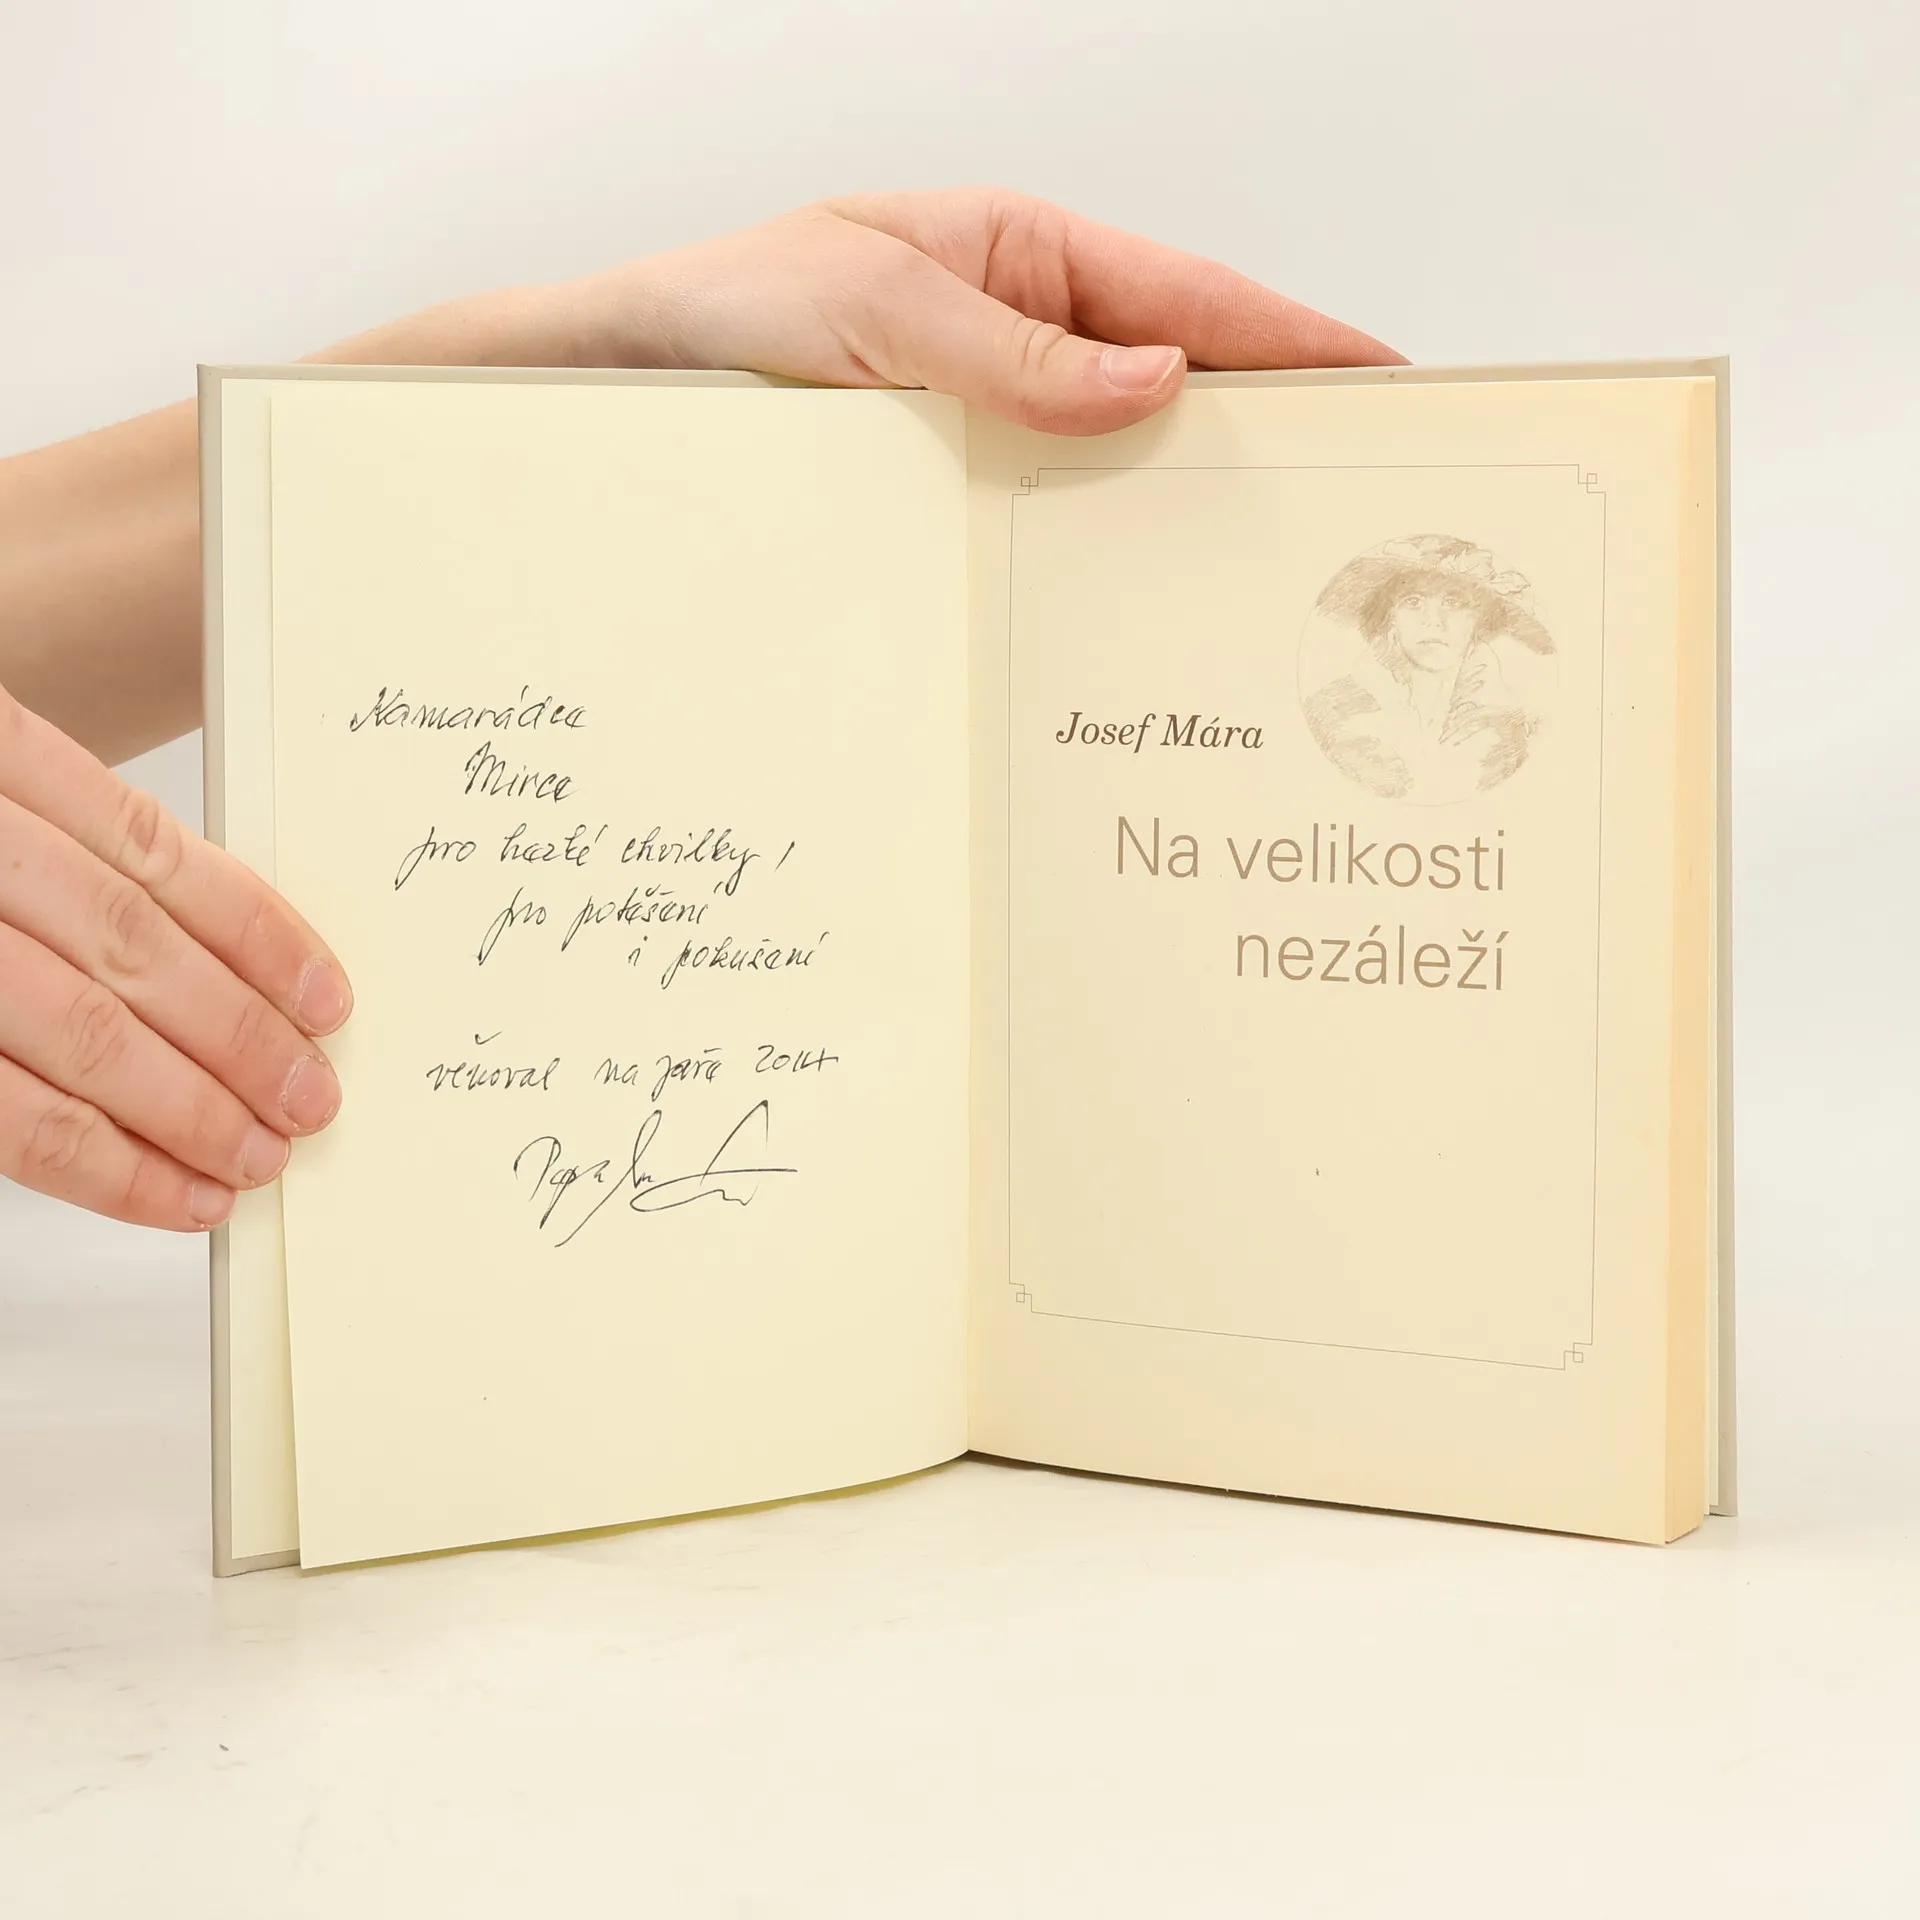 Kamarádce
Mirce
pro hezké chvilky,
pro potěšení
i pokušení
věnoval na jaře 2014
Josef Mára
Na velikosti
nezáleží